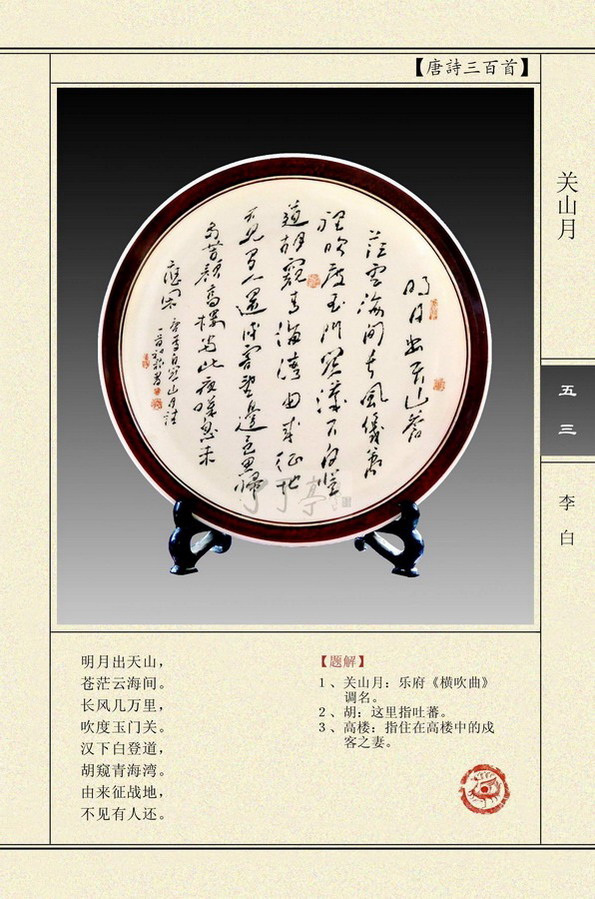 【唐詩三百首】
关山月
五三
李白
明月出天山，
苍茫云海间。
长风几万里，
吹度玉门关。
汉下白登道，
胡窥青海湾。
由来征战地，
不见有人还。
【题解】
1、关山月：乐府《横吹曲》
调名。
2、胡：这里指吐蕃。
3、高楼：指住在高楼中的戍
客之妻。
明月出天山苍
茫云海间长风几万
里吹度玉门关汉下白登
道胡窥青海湾由来征战地
不见有人还戍客望边色思归
多苦颜高楼当此夜叹息未
应闲
丁丁亭